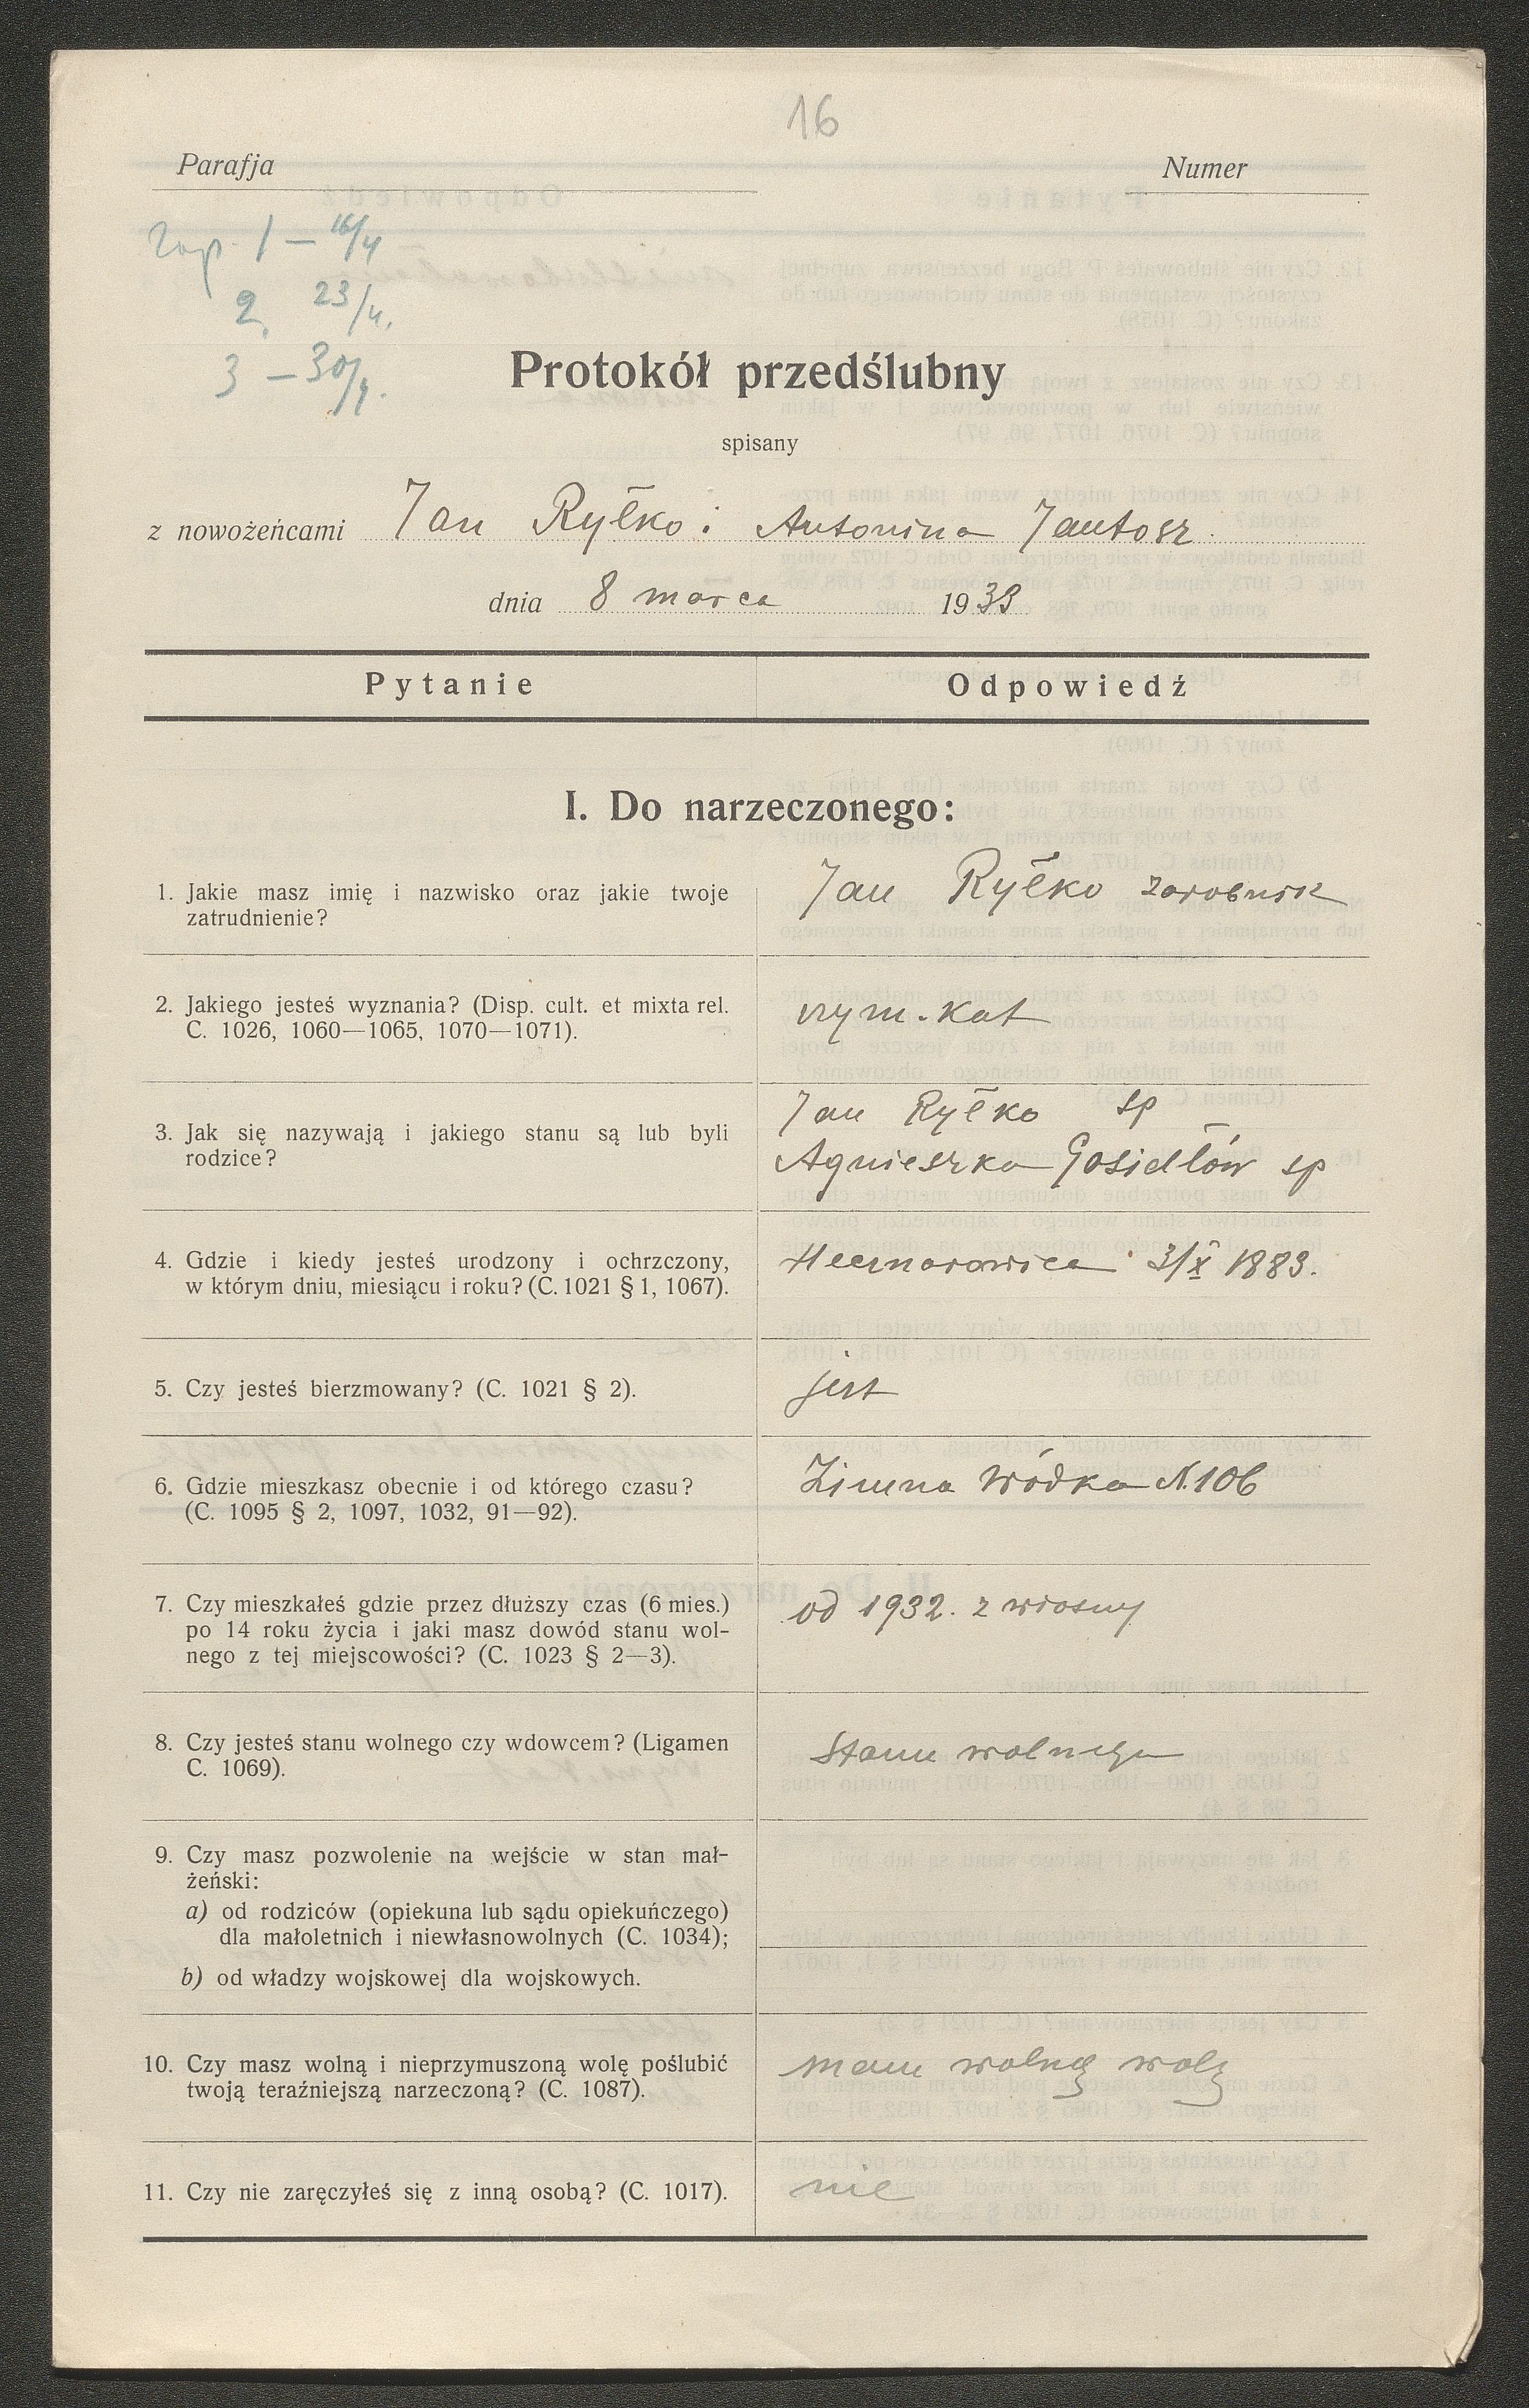 16
Parafja
Numer
zap. 1 – 16/4
2. 23/4.
3 – 30/4.
Protokół przedślubny
spisany
z nowożeńcami Jan Ryłko i Antonina Jantosz
dnia 8 marca 1933
Pytanie
Odpowiedź
I. Do narzeczonego:
1. Jakie masz imię i nazwisko oraz jakie twoje
zatrudnienie?
Jan Ryłko zarobnik
2. Jakiego jesteś wyznania? (Disp. cult. et mixta rel.
C. 1026, 1060—1065, 1070—1071).
rzym. kat
3. Jak się nazywają i jakiego stanu są lub byli
rodzice?
Jan Ryłko sp
Agnieszka Gosidłów sp
4. Gdzie i kiedy jesteś urodzony i ochrzczony,
w którym dniu, miesiącu i roku? (C. 1021 § 1, 1067).
3/X 1883.
5. Czy jesteś bierzmowany? (C. 1021 § 2).
jest
6. Gdzie mieszkasz obecnie i od którego czasu?
(C. 1095 § 2, 1097, 1032, 91—92).
Zimna Wódka N. 106
7. Czy mieszkałeś gdzie przez dłuższy czas (6 mies.)
po 14 roku życia i jaki masz dowód stanu wol-
nego z tej miejscowości? (C. 1023 § 2—3).
od 1932. z wiosny
8. Czy jesteś stanu wolnego czy wdowcem? (Ligamen
C. 1069).
Stanu wolnego
9. Czy masz pozwolenie na wejście w stan mał-
żeński:
a) od rodziców (opiekuna lub sądu opiekuńczego)
dla małoletnich i niewłasnowolnych (C. 1034);
b) od władzy wojskowej dla wojskowych.
10. Czy masz wolną i nieprzymuszoną wolę poślubić
twoją teraźniejszą narzeczoną? (C. 1087).
mam wolną wolę
11. Czy nie zaręczyłeś się z inną osobą? (C. 1017).
nie